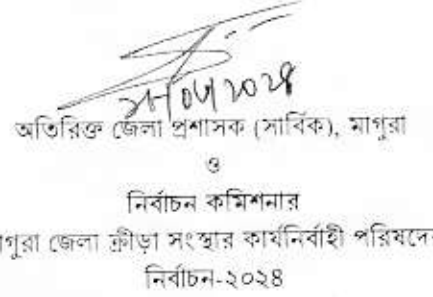 অতিরিক্ত জেলা প্রশাসক (সার্বিক), মাগুরা
ও
নির্বাচন কমিশনার
মাগুরা জেলা ক্রীড়া সংস্থার কার্যনির্বাহী পরিষদের
নির্বাচন-২০২৪